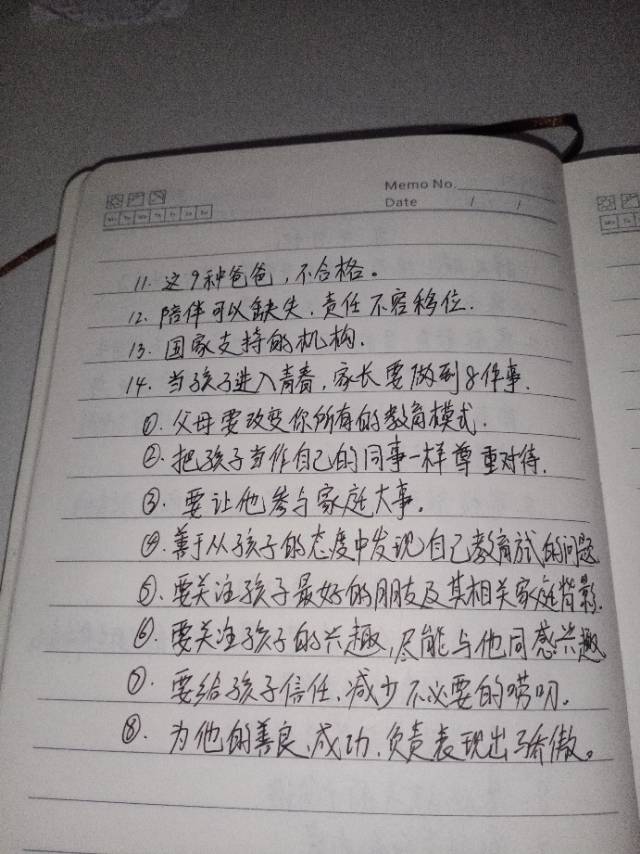 Memo No.
Date / /
Mo Tu We Th Fr Sa Su
11. 这9种爸爸，不合格。
12. 陪伴可以缺失，责任不容移位.
13. 国家支持的机构.
14. 当孩子进入青春，家长要做到8件事.
①. 父母要改变你所有的教育模式.
②. 把孩子当作自己的同事一样尊重对待.
③. 要让他参与家庭大事.
④. 善于从孩子的态度中发现自己教育方式的问题
⑤. 要关注孩子最好的朋友及其相关家庭背影.
⑥. 要关注孩子的兴趣,尽能与他同感兴趣
⑦. 要给孩子信任,减少不必要的唠叨。
⑧. 为他的善良,成功,负责表现出骄傲。